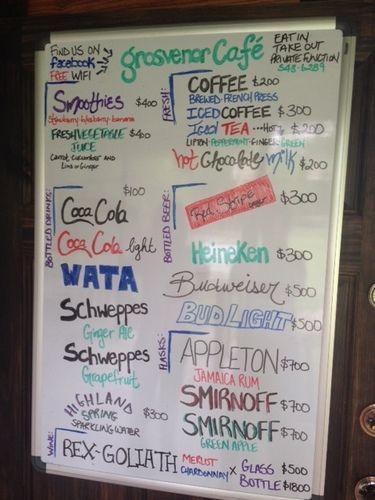 FIND US ON
facebook
FREE WIFI
grosvenor Café
EAT IN
TAKE OUT
PRIVATE FUNCTION
Smoothies $400
Strawberry-blueberry-banana
FRESH VEGETABLE $400
JUICE
Carrot, cucumber AND
Lime or Ginger
FRESH:
COFFEE $200
BREWED-FRENCH PRESS
ICED COFFEE $300
ICED TEA ---Hot $200
LIPTON-PEPPERMINT-GINGER-GREEN
hot Chocolate milk $200
BOTTLED DRINKS:
$100
Coca Cola
Coca Cola light
WATA
Schweppes
Ginger Ale
Schweppes
Grapefruit
HIGHLAND
SPRING $300
SPARKLING WATER
BOTTLED BEER:
Red Stripe $300
Heineken $300
Budweiser $500
BUD LIGHT $500
FLASKS:
APPLETON $700
JAMAICA RUM
SMIRNOFF $700
SMIRNOFF $700
GREEN APPLE
WINE:
REX-GOLIATH MERLOT CHARDONNAY X GLASS $500
BOTTLE $1800